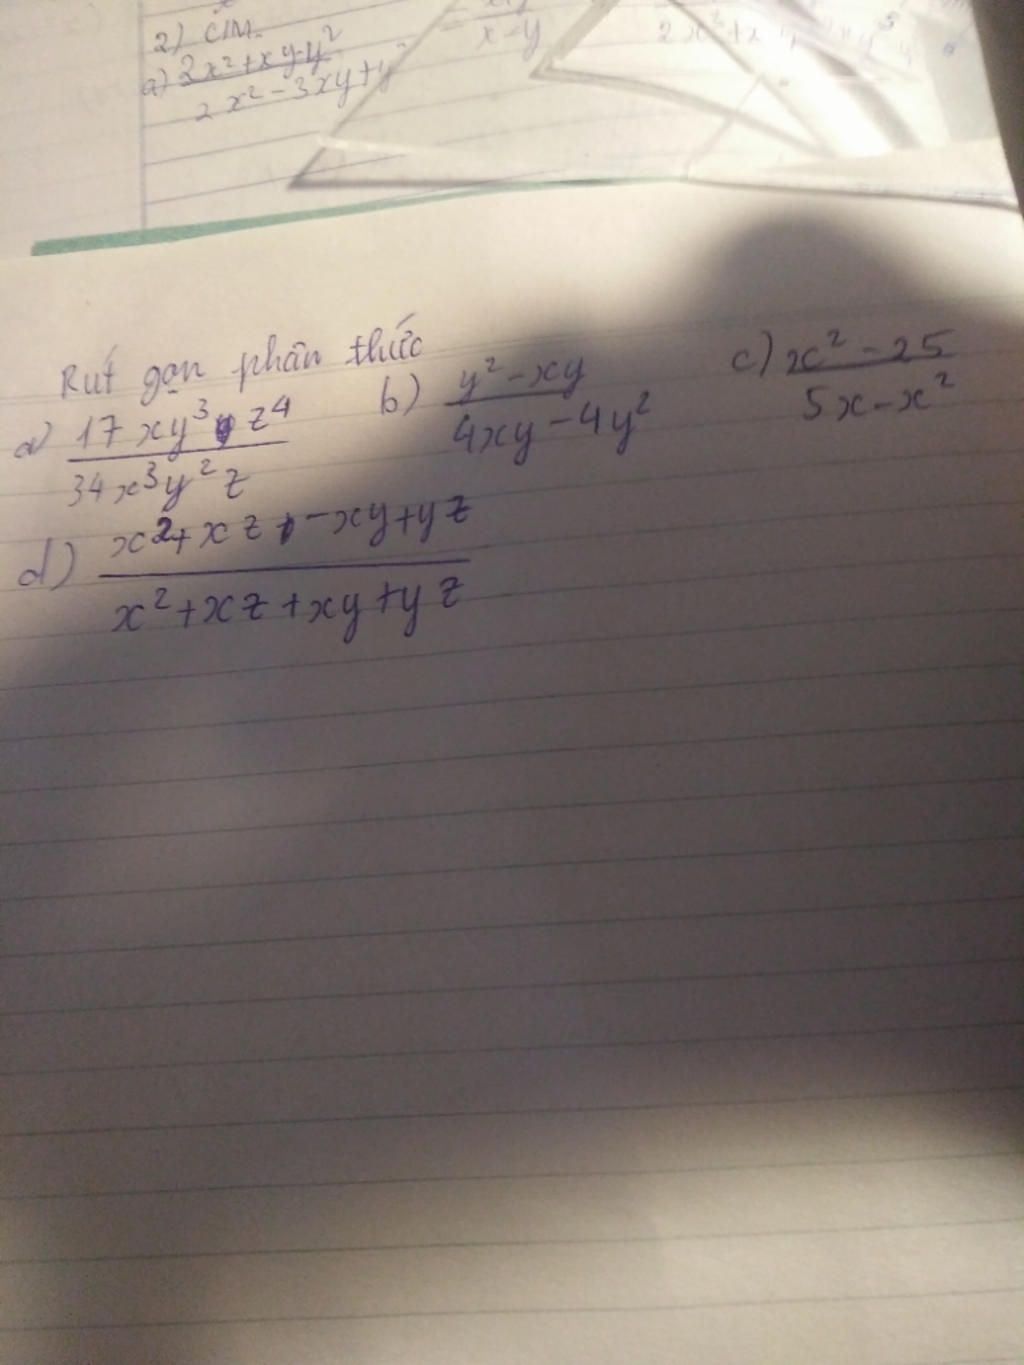 2) CM
a) 2x² + xy - y²
2x² - 3xy + y
x - y
Rút gọn phân thức
a) 17xy³z⁴ / 34x³y²z b) y² - xy / 4xy - 4y² c) x² - 25 / 5x - x²
d) x² + xz - xy + yz / x² + xz + xy + yz